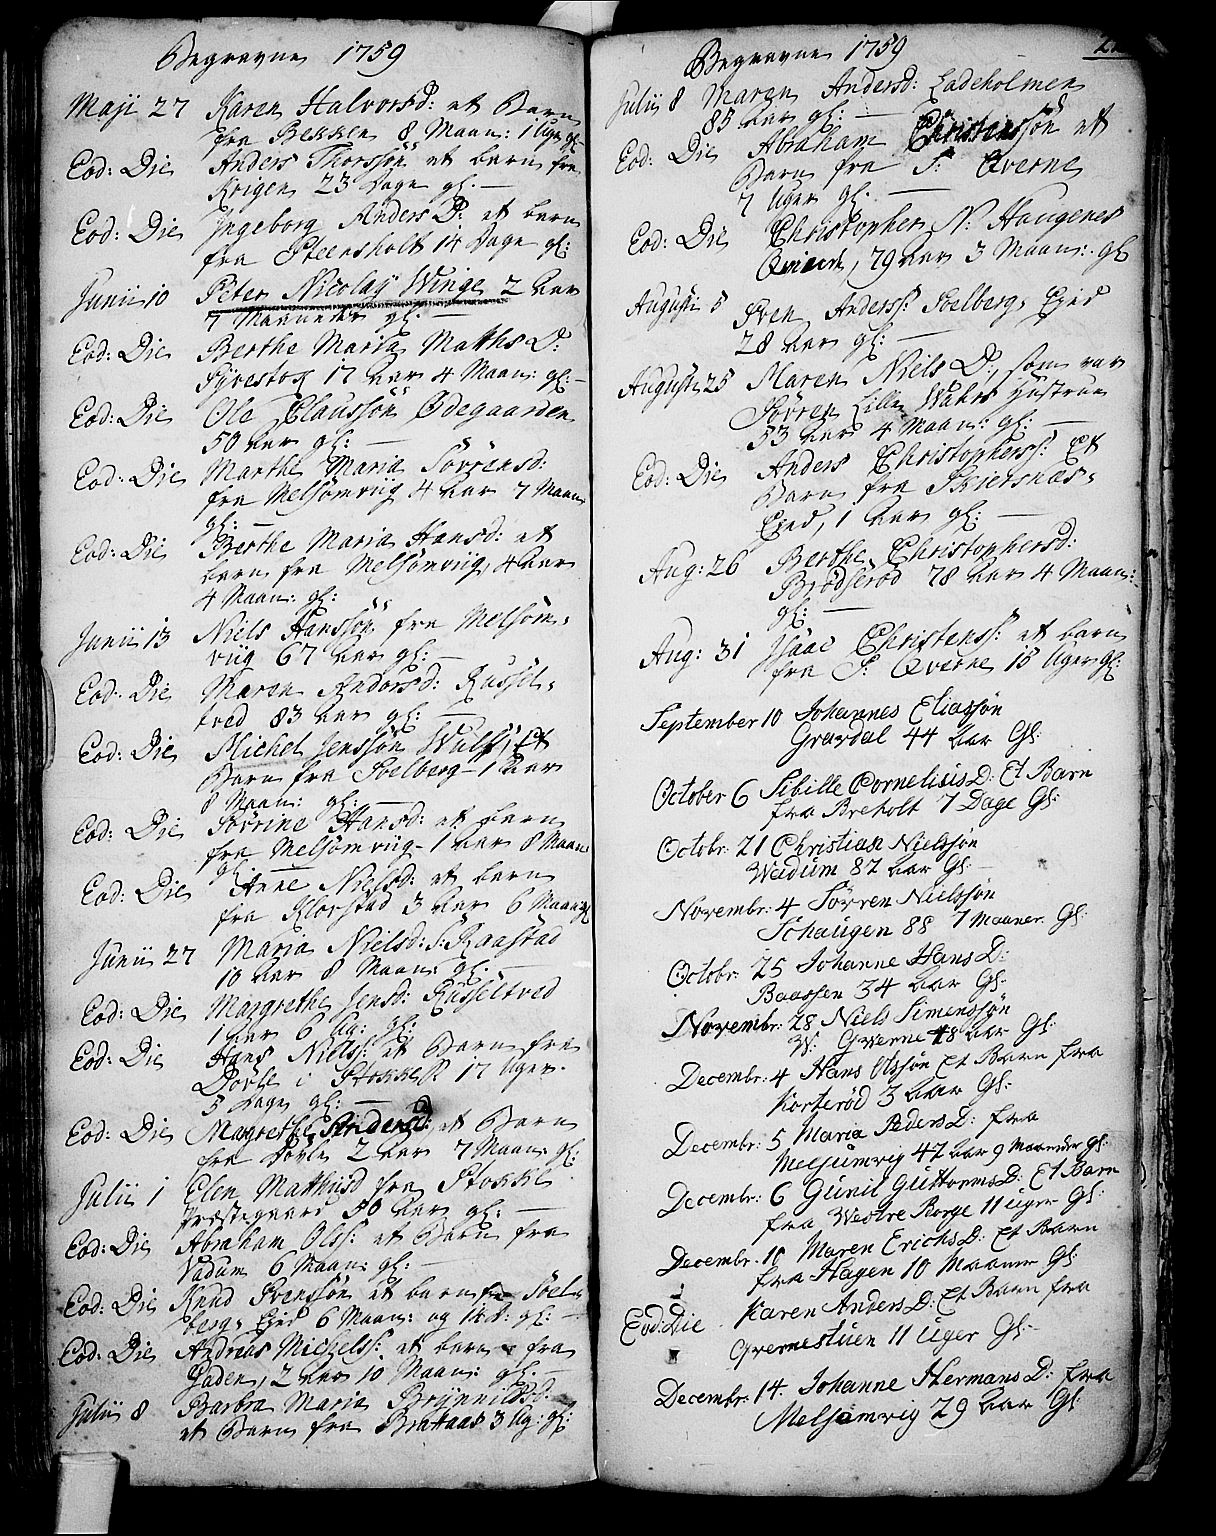 Begravne 1759
Maji 27 Karen Halvorsd: et Barn
fra Bekken 8 Maan: 1 Uge gl:
Eod: Die Anders Thorssøn et barn fra
Krigen 23 Dage gl: —
Eod: Die Ingeborg Anders D: et barn
fra Steensholt 14 Dage gl:
Junii 10 Peter Nicolaij Winge 2 Aar
7 Maaneder gl: —
Eod: Die Berthe Maria Matths D:
17 Aar 4 Maan: gl: —
Eod: Die Ole Claussøn Ødegaarden
50 Aar gl: —
Eod: Die Marthe Maria Sørrensd:
fra Melsomviig 4 Aar 7 Maan:
gl: —
Eod: Die Berthe Maria Hansd: et
barn fra Melsomviig, 4 Aar
4 Maan: gl:
Junii 13 Niels Hanssøn fra Melsom-
viig 67 Aar gl: —
Eod: Die Maren Andersd: Russel-
tved 83 Aar gl: —
Eod: Die Michel Jenssøn Wulf, Et
Barn fra Soelberg 1 Aar
8 Maan: gl: —
Eod: Die Sørrine Hansd: et barn
fra Melsomviig 1 Aar 8 Maan:
gl: —
Eod: Die Anne Nielsd: et barn
fra Klovstad 3 Aar 6 Maan: gl:
Junii 27 Maria Nielsd: S: Raastad
10 Aar 8 Maan: gl: —
Eod: Die Margrethe Jensd: Russeltved
1 Aar 6 Ug: gl:
Eod: Die Hans Nielss: et Barn fra
Dovle i Stokke P: 17 Uger
5 Dage gl: —
Eod: Die Magrethe Andersd: et Barn
fra Dovle 2 Aar 7 Maan: gl:
Julii 1 Elen Matthiisd fra Stokke
Præstegaard 50 Aar gl: —
Eod: Die Abraham Olss: et Barn fra
Vadum 6 Maan: gl: —
Eod: Die Knud Svenssøn et barn fra Soel-
bergs Eied 6 Maan: og 14 d: gl: —
Eod: Die Andreas Michelss: et barn fra
Gaden, 2 Aar 10 Maan: gl: —
Julii 8 Barbra Maria
et Barn fra Brataas 3 Ug: gl:
Begravne 1759
Julii 8 Maren Andersd: Ladeholmen
83 Aar gl: —
Eod: Die Abraham Christenssøn et
Barn fra S: Qverne
7 Uger gl: —
Eod: Die Christopher N: Haugenes
79 Aar 3 Maan: gl
Augusti 5 Sven Anderss: Soelbergs Eied
28 Aar gl: —
Augusti 25 Maren Niels D:, som var
Sørren Lille Wahrs Hustrue
53 Aar 4 Maan: gl: —
Eod: Die Anders Christopherss: Et
Barn fra Skiersnæs-
Eied, 1 Aar gl: —
Aug: 26 Berthe Christophersd:
Brødserød 78 Aar 4 Maan:
gl: —
Aug: 31 Isaac Christenss: et barn
fra S: Qverne 15 Uger gl:
September 10 Johannes Eliassøn
Gravdal 44 Aar Gl:
October 6 Sibille Cornelisis D: Et Barn
fra Breholt 7 Dage Gl:
Octobr: 21 Christian Nielssøn
Weidum 82 Aar Gl: —
Novembr: 4 Sørren Nielssøn
Schaugen 88 7 Maaner Gl:
Octobr: 25 Johanne Hans D:
Baassen 34 Aar Gl:
Novembr: 28 Niels Simenssøn
W: Qverne 48 Aar Gl:
Decembr: 4 Hans Olssøn Et Barn fra
Korterød 3 Aar Gl:
Decembr: 5 Maria Peders D: fra
Melsumvig 47 Aar 9 Maaneder Gl:
Decembr: 6 Gunil Guttorms D: Et Barn
fra Westre Borge 11 Uger Gl:
Decembr: 10 Maren Erichs D: Et Barn
fra Hagen 10 Maaner Gl:
Eod: Die Karen Anders D: Et Barn fra
Qvernestuen 11 Uger Gl:
Decembr: 14 Johanne Hermans D: fra
Melsomvig 29 Aar Gl: